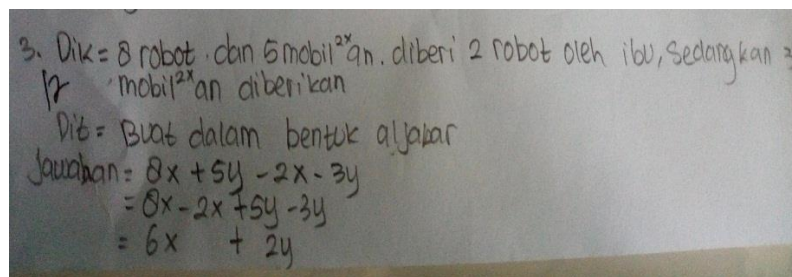 3. Dik = 8 robot dan 5 mobil²ˣan. diberi 2 robot oleh ibu, sedangkan 3
mobil²ˣan diberikan
Dit = Buat dalam bentuk aljabar
Jawaban = 8x + 5y - 2x - 3y
= 8x - 2x + 5y - 3y
= 6x + 2y